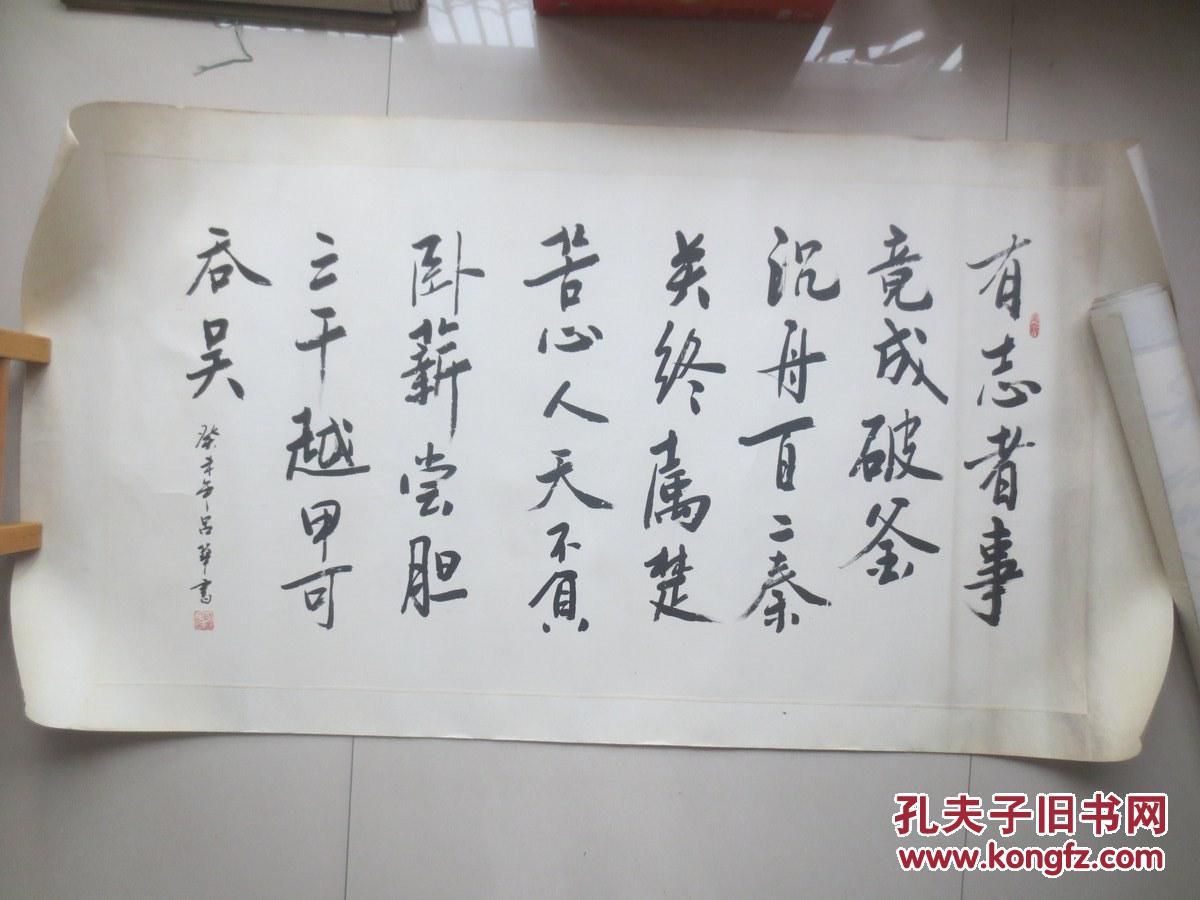 有志者事
竟成破釜
沉舟百二秦
关终属楚
苦心人天不負
卧薪尝胆
三千越甲可
吞吴
癸未年吕華書
孔夫子旧书网
www.kongfz.com